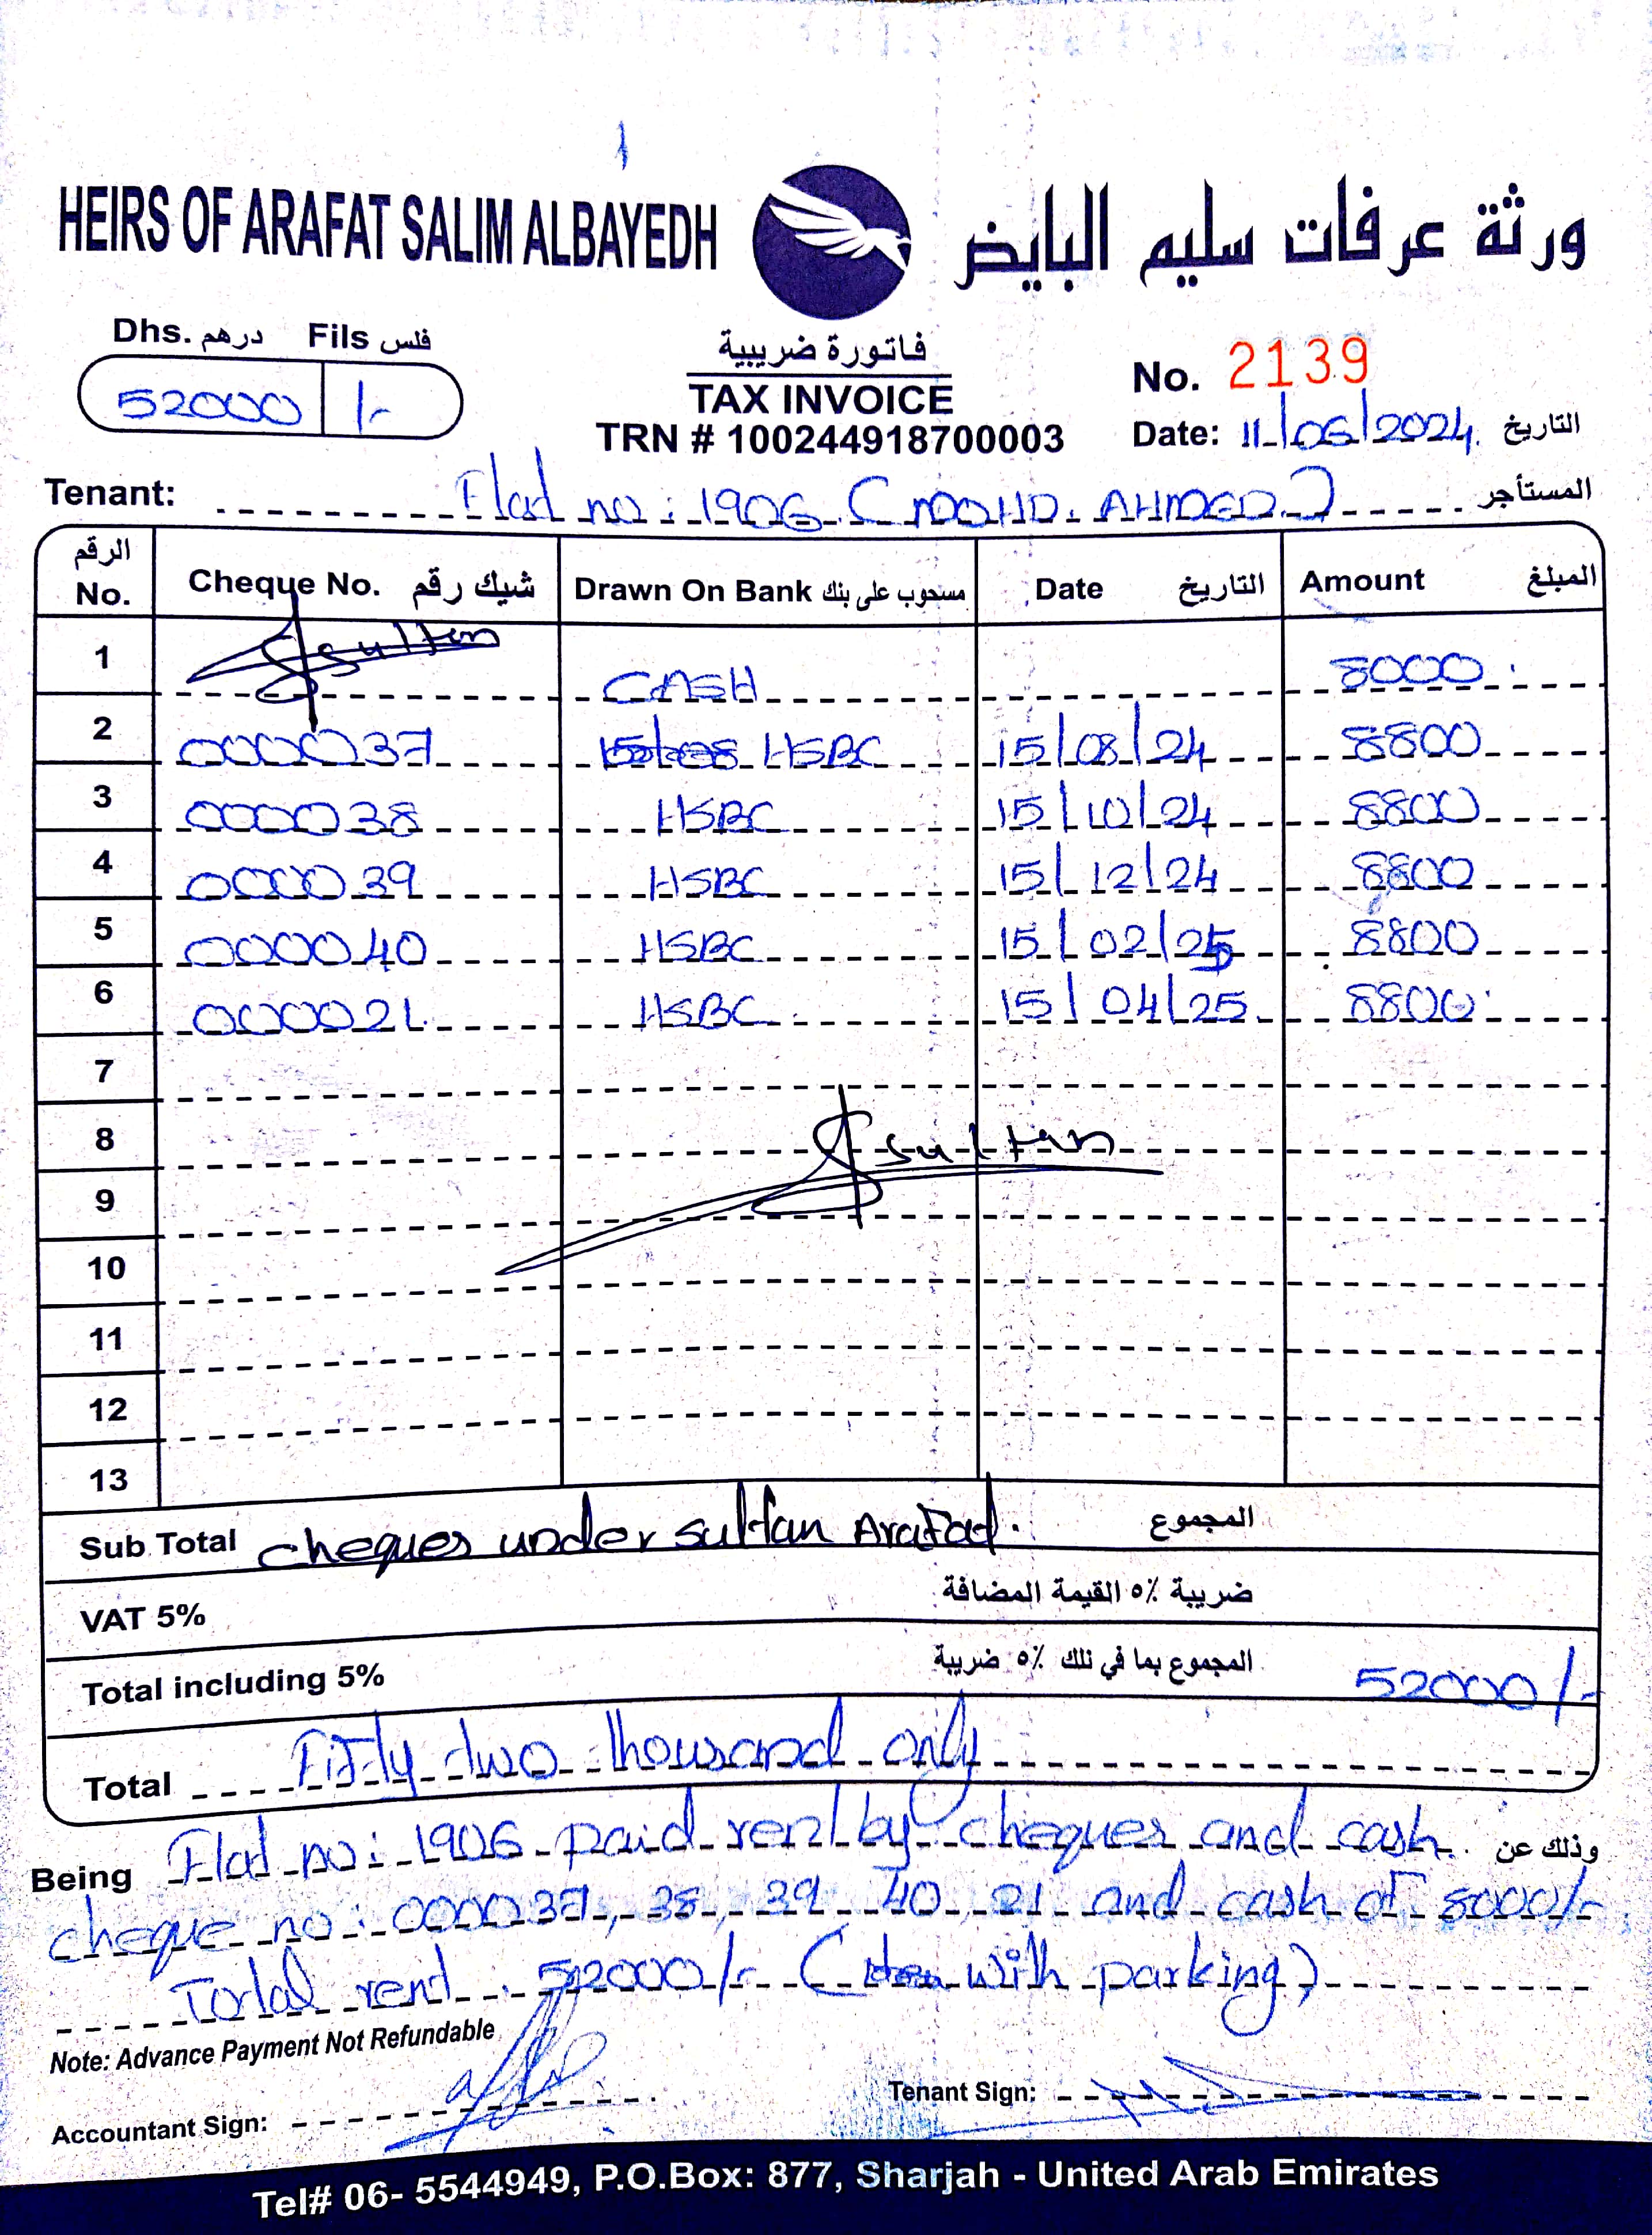 HEIRS OF ARAFAT SALIM ALBAYEDH ورثة عرفات سليم البايض
Dhs. درهم Fils فلس
52000 /-
فاتورة ضريبية
TAX INVOICE
TRN # 100244918700003
No. 2139
Date: 11/06/2024 التاريخ
Tenant: Flat no: 1906 (MOHD. AHMED) المستأجر
الرقم No. Cheque No. شيك رقم Drawn On Bank مسحوب على بنك Date التاريخ Amount المبلغ
1 Sultan CASH 8000
2 000037 HSBC 15/08/24 8800
3 000038 HSBC 15/10/24 8800
4 000039 HSBC 15/12/24 8800
5 000040 HSBC 15/02/25 8800
6 000021 HSBC 15/04/25 8800
7
8 Sultan
9
10
11
12
13
Sub Total cheques under Sultan Arafat. المجموع
VAT 5% ضريبة ٥٪ القيمة المضافة
Total including 5% المجموع بما في ذلك ٥٪ ضريبة 52000/-
Total Fifty two thousand only
Being Flat no: 1906 paid rent by cheques and cash وذلك عن
cheque no: 000037, 38, 39 40, 21 and cash of 8000/-
Total rent . 52000/- ( with parking)
Note: Advance Payment Not Refundable
Accountant Sign: Tenant Sign:
Tel# 06- 5544949, P.O.Box: 877, Sharjah - United Arab Emirates